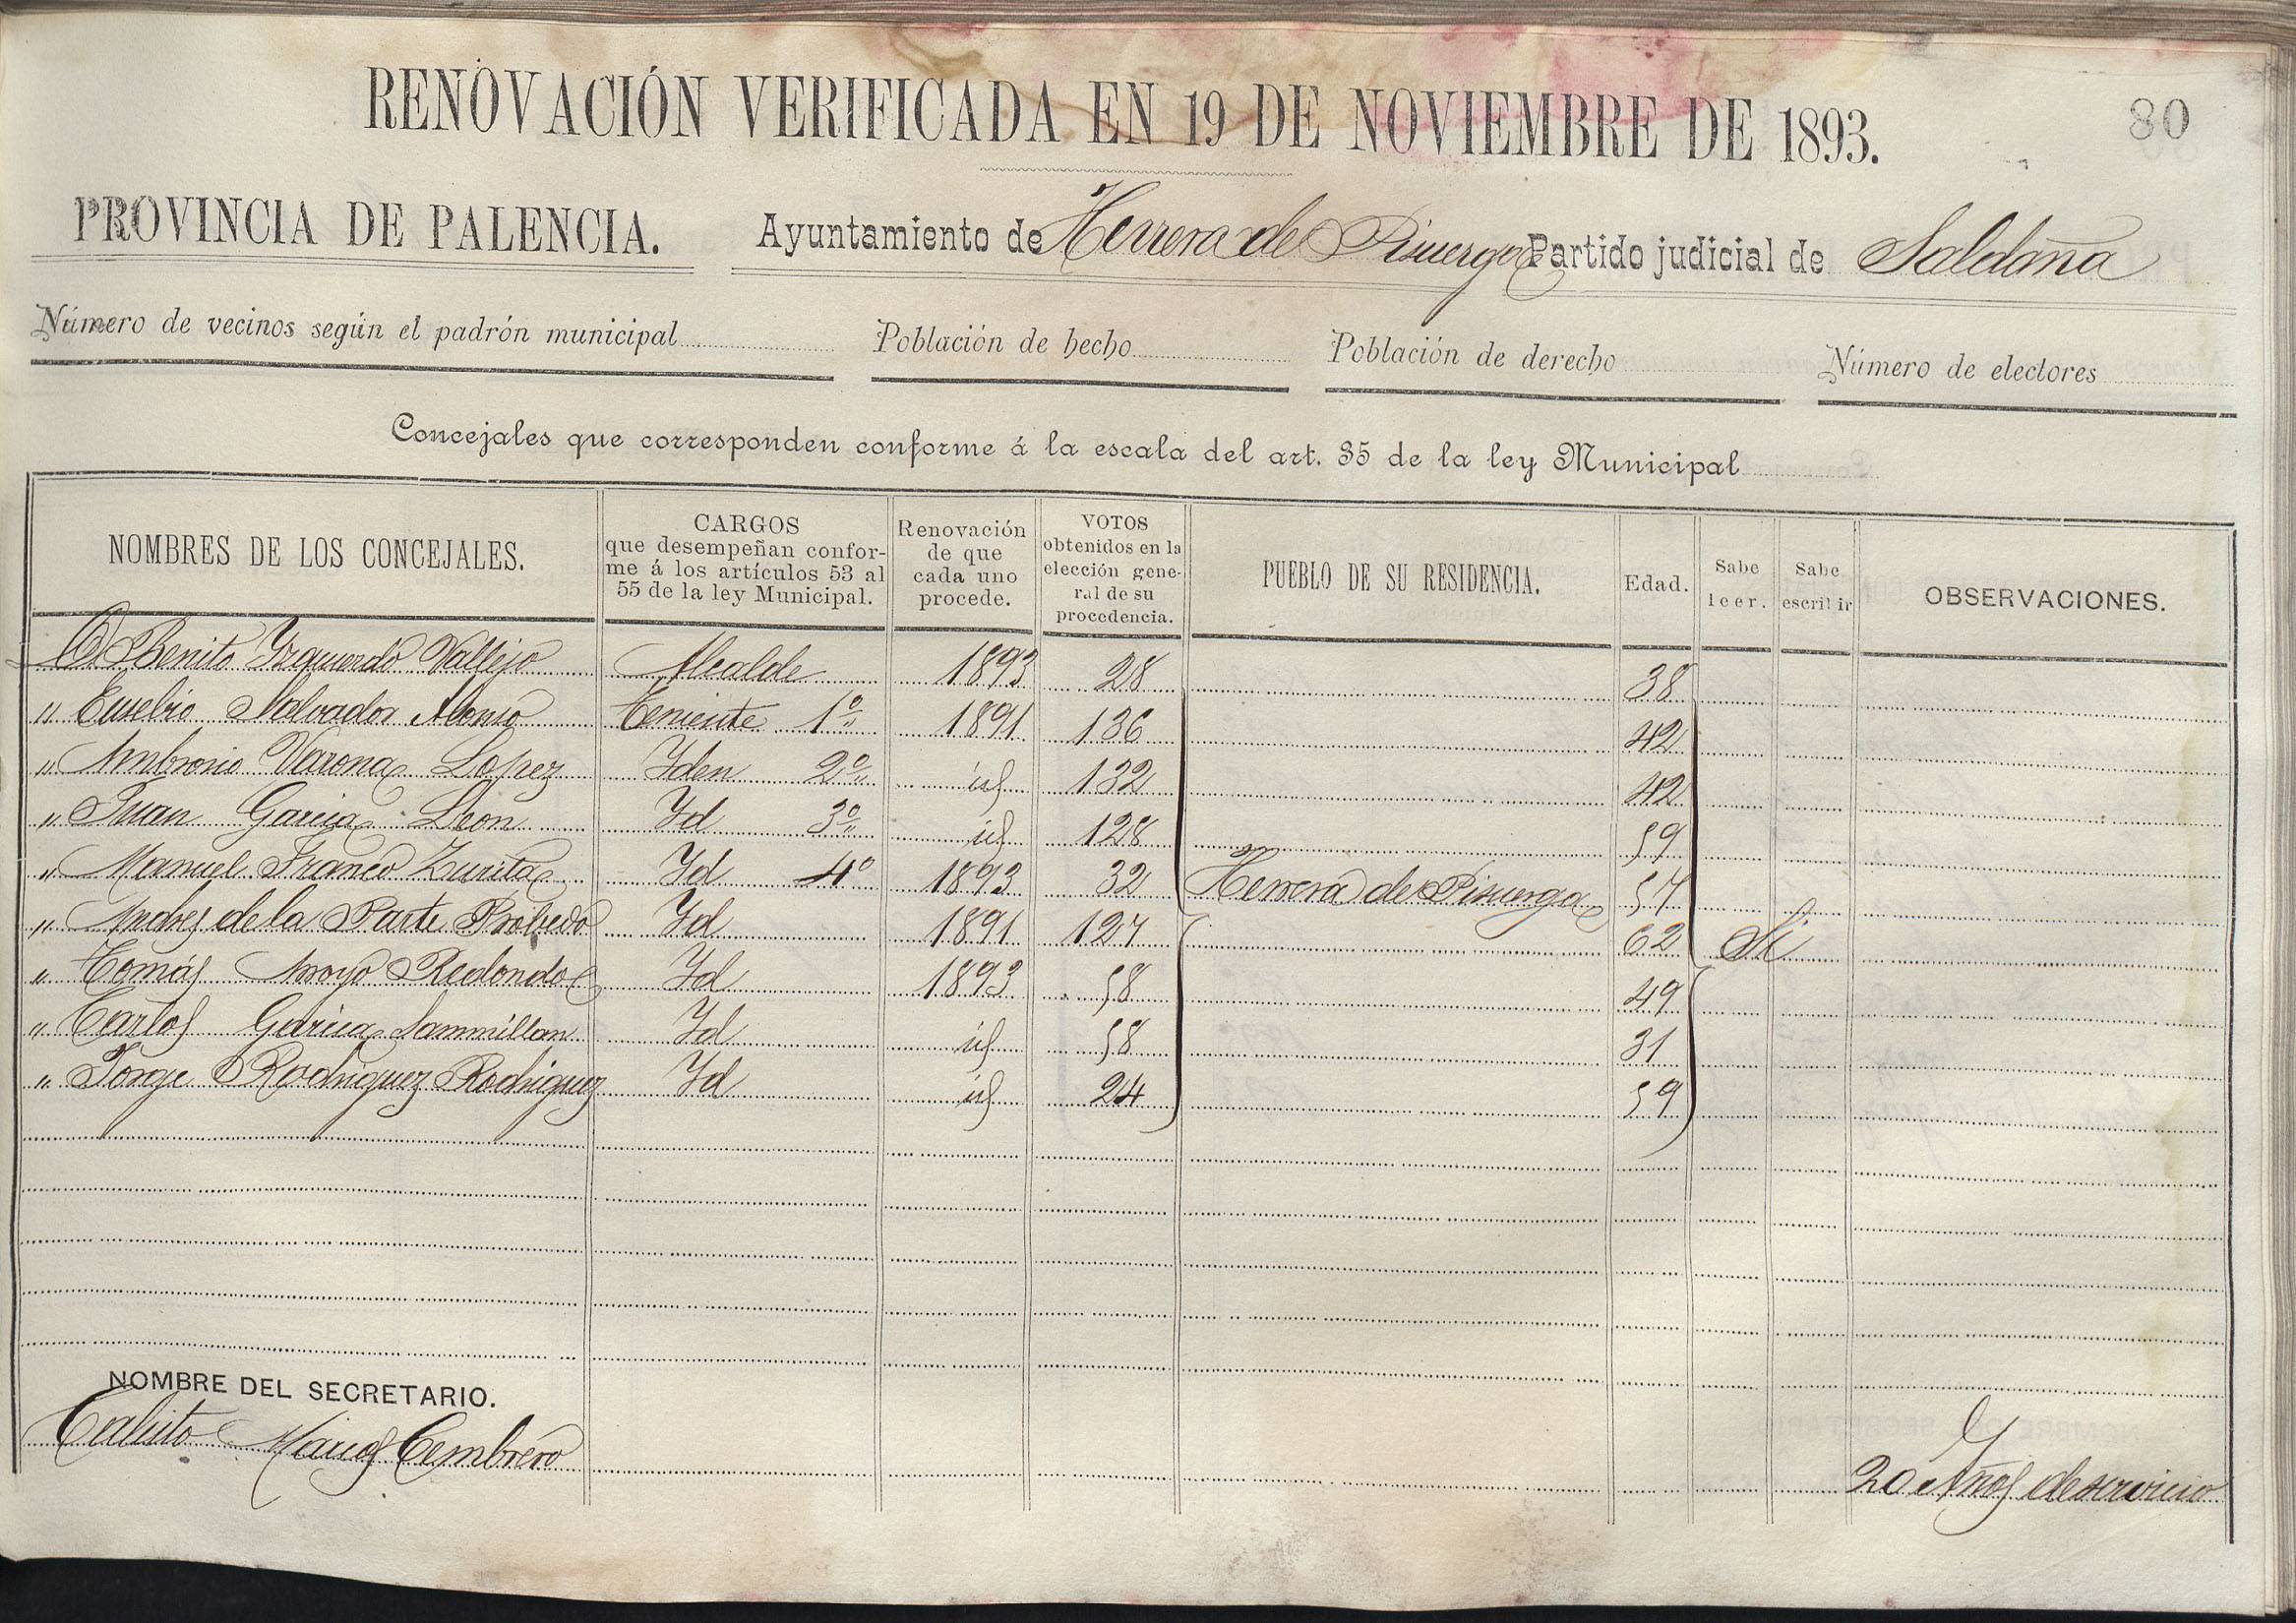 RENOVACIÓN VERIFICADA EN 19 DE NOVIEMBRE DE 1893.
80
PROVINCIA DE PALENCIA. Ayuntamiento de Herrera de Pisuerga Partido judicial de Saldaña
Número de vecinos según el padrón municipal Población de hecho Población de derecho Número de electores
Concejales que corresponden conforme á la escala del art. 35 de la ley Municipal
NOMBRES DE LOS CONCEJALES.
CARGOS
que desempeñan confor-
me á los artículos 53 al
55 de la ley Municipal.
Renovación
de que
cada uno
procede.
VOTOS
obtenidos en la
elección gene-
ral de su
procedencia.
PUEBLO DE SU RESIDENCIA.
Edad.
Sabe
leer.
Sabe
escribir
OBSERVACIONES.
D. Benito Yzquierdo Vallejo Alcalde 1893 28 38
" Eusebio Salvador Alonso Teniente 1º 1891 136 42
" Ambrosio Varona Lopez Yden 2º id 132 42
" Juan Garcia Leon Yd 3º id 128 59
" Manuel Franco Zurita Yd 4º 1893 32 Herrera de Pisuerga 57
" Andres de la Parte Yd 1891 127 62 Si
" Tomás Arroyo Redondo Yd 1893 58 49
" Carlos Garcia Sanmillan Yd id 58 31
" Jorge Rodriguez Rodriguez Yd id 24 59
NOMBRE DEL SECRETARIO.
Calisto Marcos Cembrero 20 Años de servicio